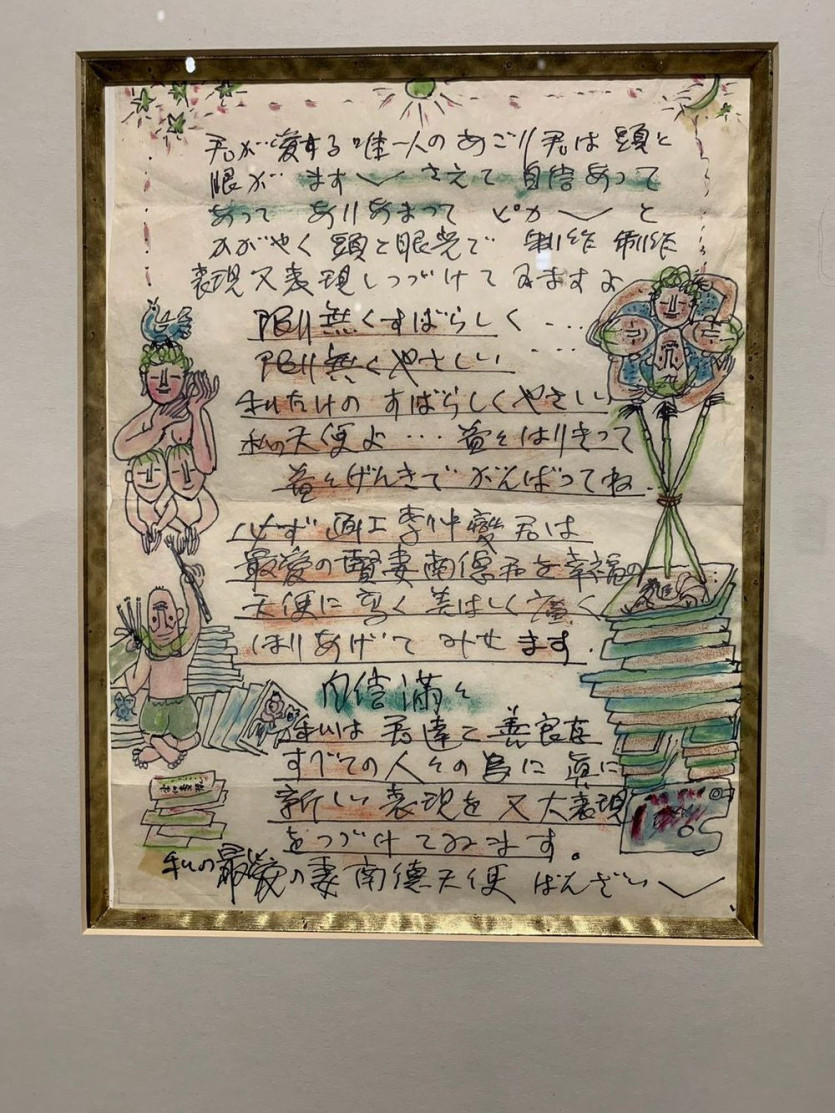 君が愛する唯一人のあごり君は頭と
眼が ます〱 さえて 自信あって
あって ありあまって ピカ〱 と
かがやく 頭と眼光で 制作 制作
表現又表現しつづけてみますよ
限り無くすばらしく・・・
限り無くやさしい・・・
私だけの すばらしくやさしい
私の天使よ・・・益々はりきって
益々げんきで がんばってね.
必ず 画工李仲燮君は
最愛の賢妻南德君を幸福の
天使に高く美はしく広く
ほりあげて みせ ます.
自信満々
私は 君達と 善良な
すべての人々の為に 真に
新しい表現を 又大表現
をつづけてみます。
私の最愛の妻南德天使 ばんざい〱